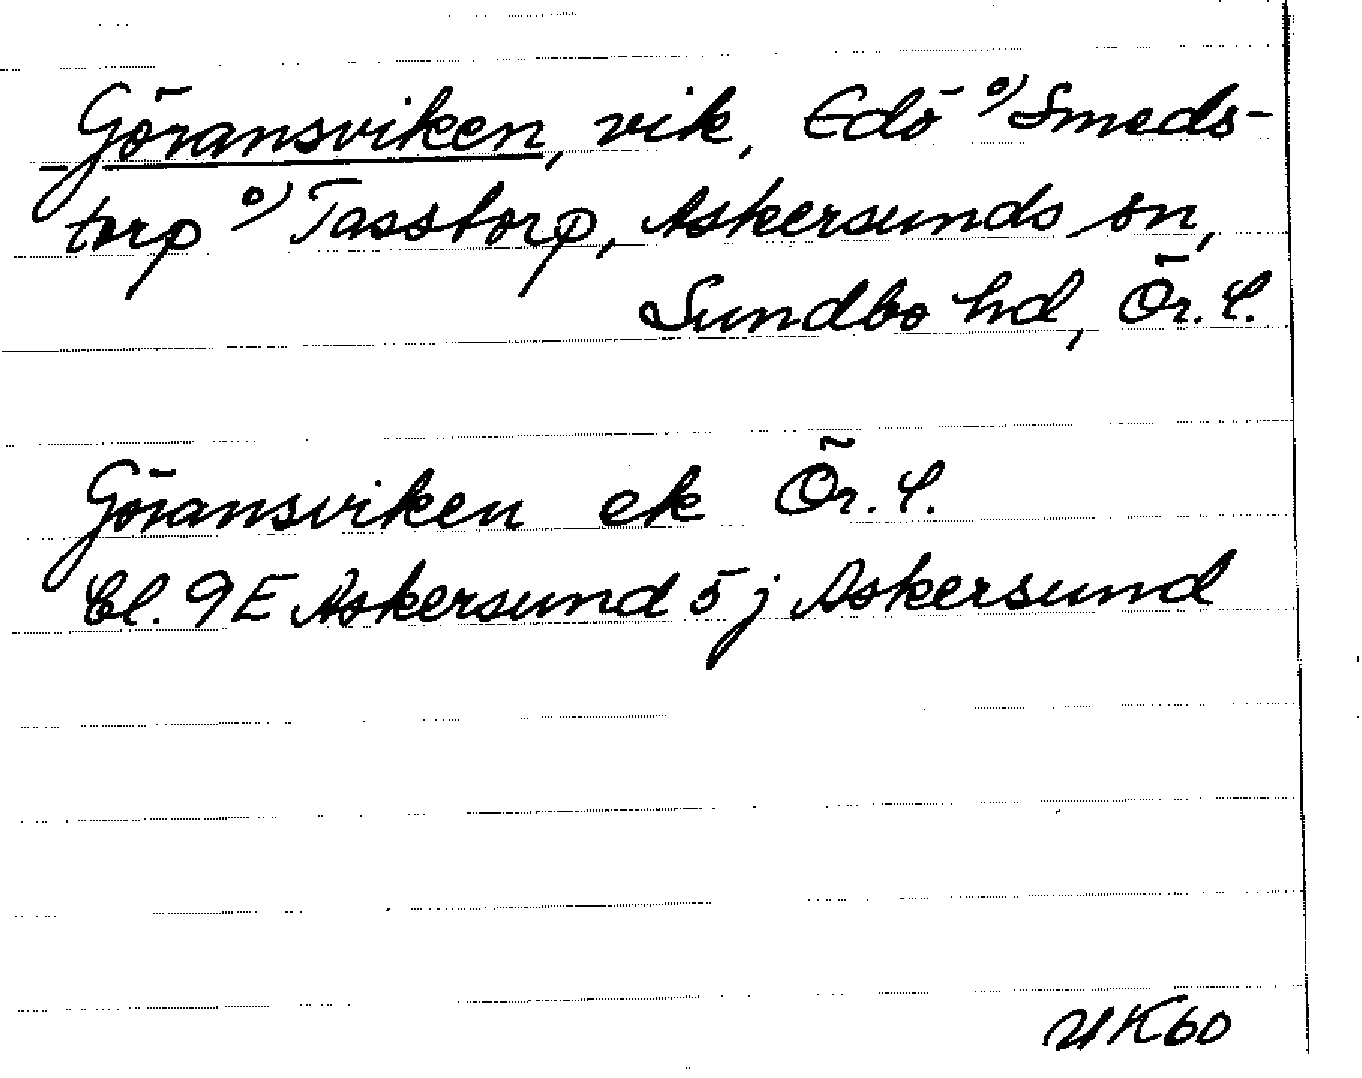 Göransviken, vik, Edö o/ Smeds-
torp o/ Tasstorp, Askersunds sn,
Sundbo hd, Ör. l.
Göransviken ek Ör. l.
Bl. 9E Askersund 5j Askersund
UK60